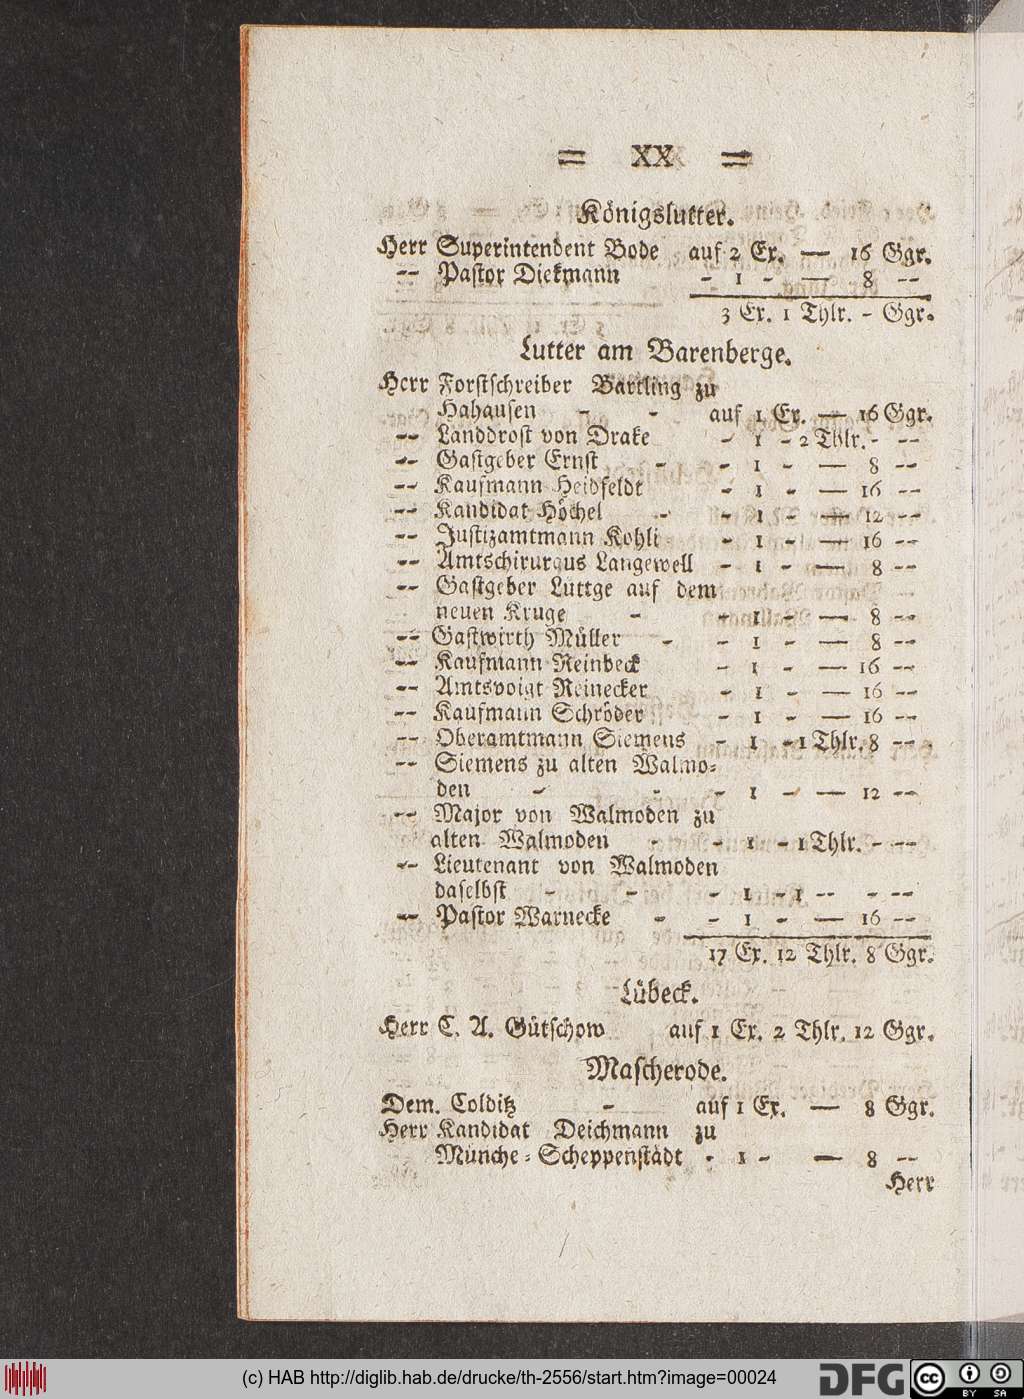 = XX =
Königslutter.
Herr Superintendent Bode auf 2 Ex. — 16 Ggr.
-- Pastor Diekmann - 1 - — 8 --
3 Ex. 1 Thlr. - Ggr.
Lutter am Barenberge.
Herr Forstschreiber Bartling zu
Hahausen - - auf 1 Ex. — 16 Ggr.
-- Landdrost von Drake - 1 - 2 Thlr. - --
-- Gastgeber Ernst - - 1 - — 8 --
-- Kaufmann Heidfeldt - 1 - — 16 --
-- Kandidat Höchel - - 1 - — 12 --
-- Justizamtmann Kohli - 1 - — 16 --
-- Amtschirurgus Langewell - 1 - — 8 --
-- Gastgeber Lüttge auf dem
neuen Kruge - - 1 - — 8 --
-- Gastwirth Müller - - 1 - — 8 --
-- Kaufmann Reinbeck - 1 - — 16 --
-- Amtsvoigt Reinecker - 1 - — 16 --
-- Kaufmann Schröder - 1 - — 16 --
-- Oberamtmann Siemens - 1 - 1 Thlr. 8 --
-- Siemens zu alten Walmo=
den - - - 1 - — 12 --
-- Major von Walmoden zu
alten Walmoden - - 1 - 1 Thlr. - --
-- Lieutenant von Walmoden
daselbst - - - 1 - 1 -- - --
-- Pastor Warnecke - - 1 - — 16 --
17 Ex. 12 Thlr. 8 Ggr.
Lübeck.
Herr C. A. Gütschow auf 1 Ex. 2 Thlr. 12 Ggr.
Mascherode.
Dem. Colditz - auf 1 Ex. — 8 Ggr.
Herr Kandidat Deichmann zu
Münche=Scheppenstädt - 1 - — 8 --
Herr
(c) HAB http://diglib.hab.de/drucke/th-2556/start.htm?image=00024
DFG
cc BY SA